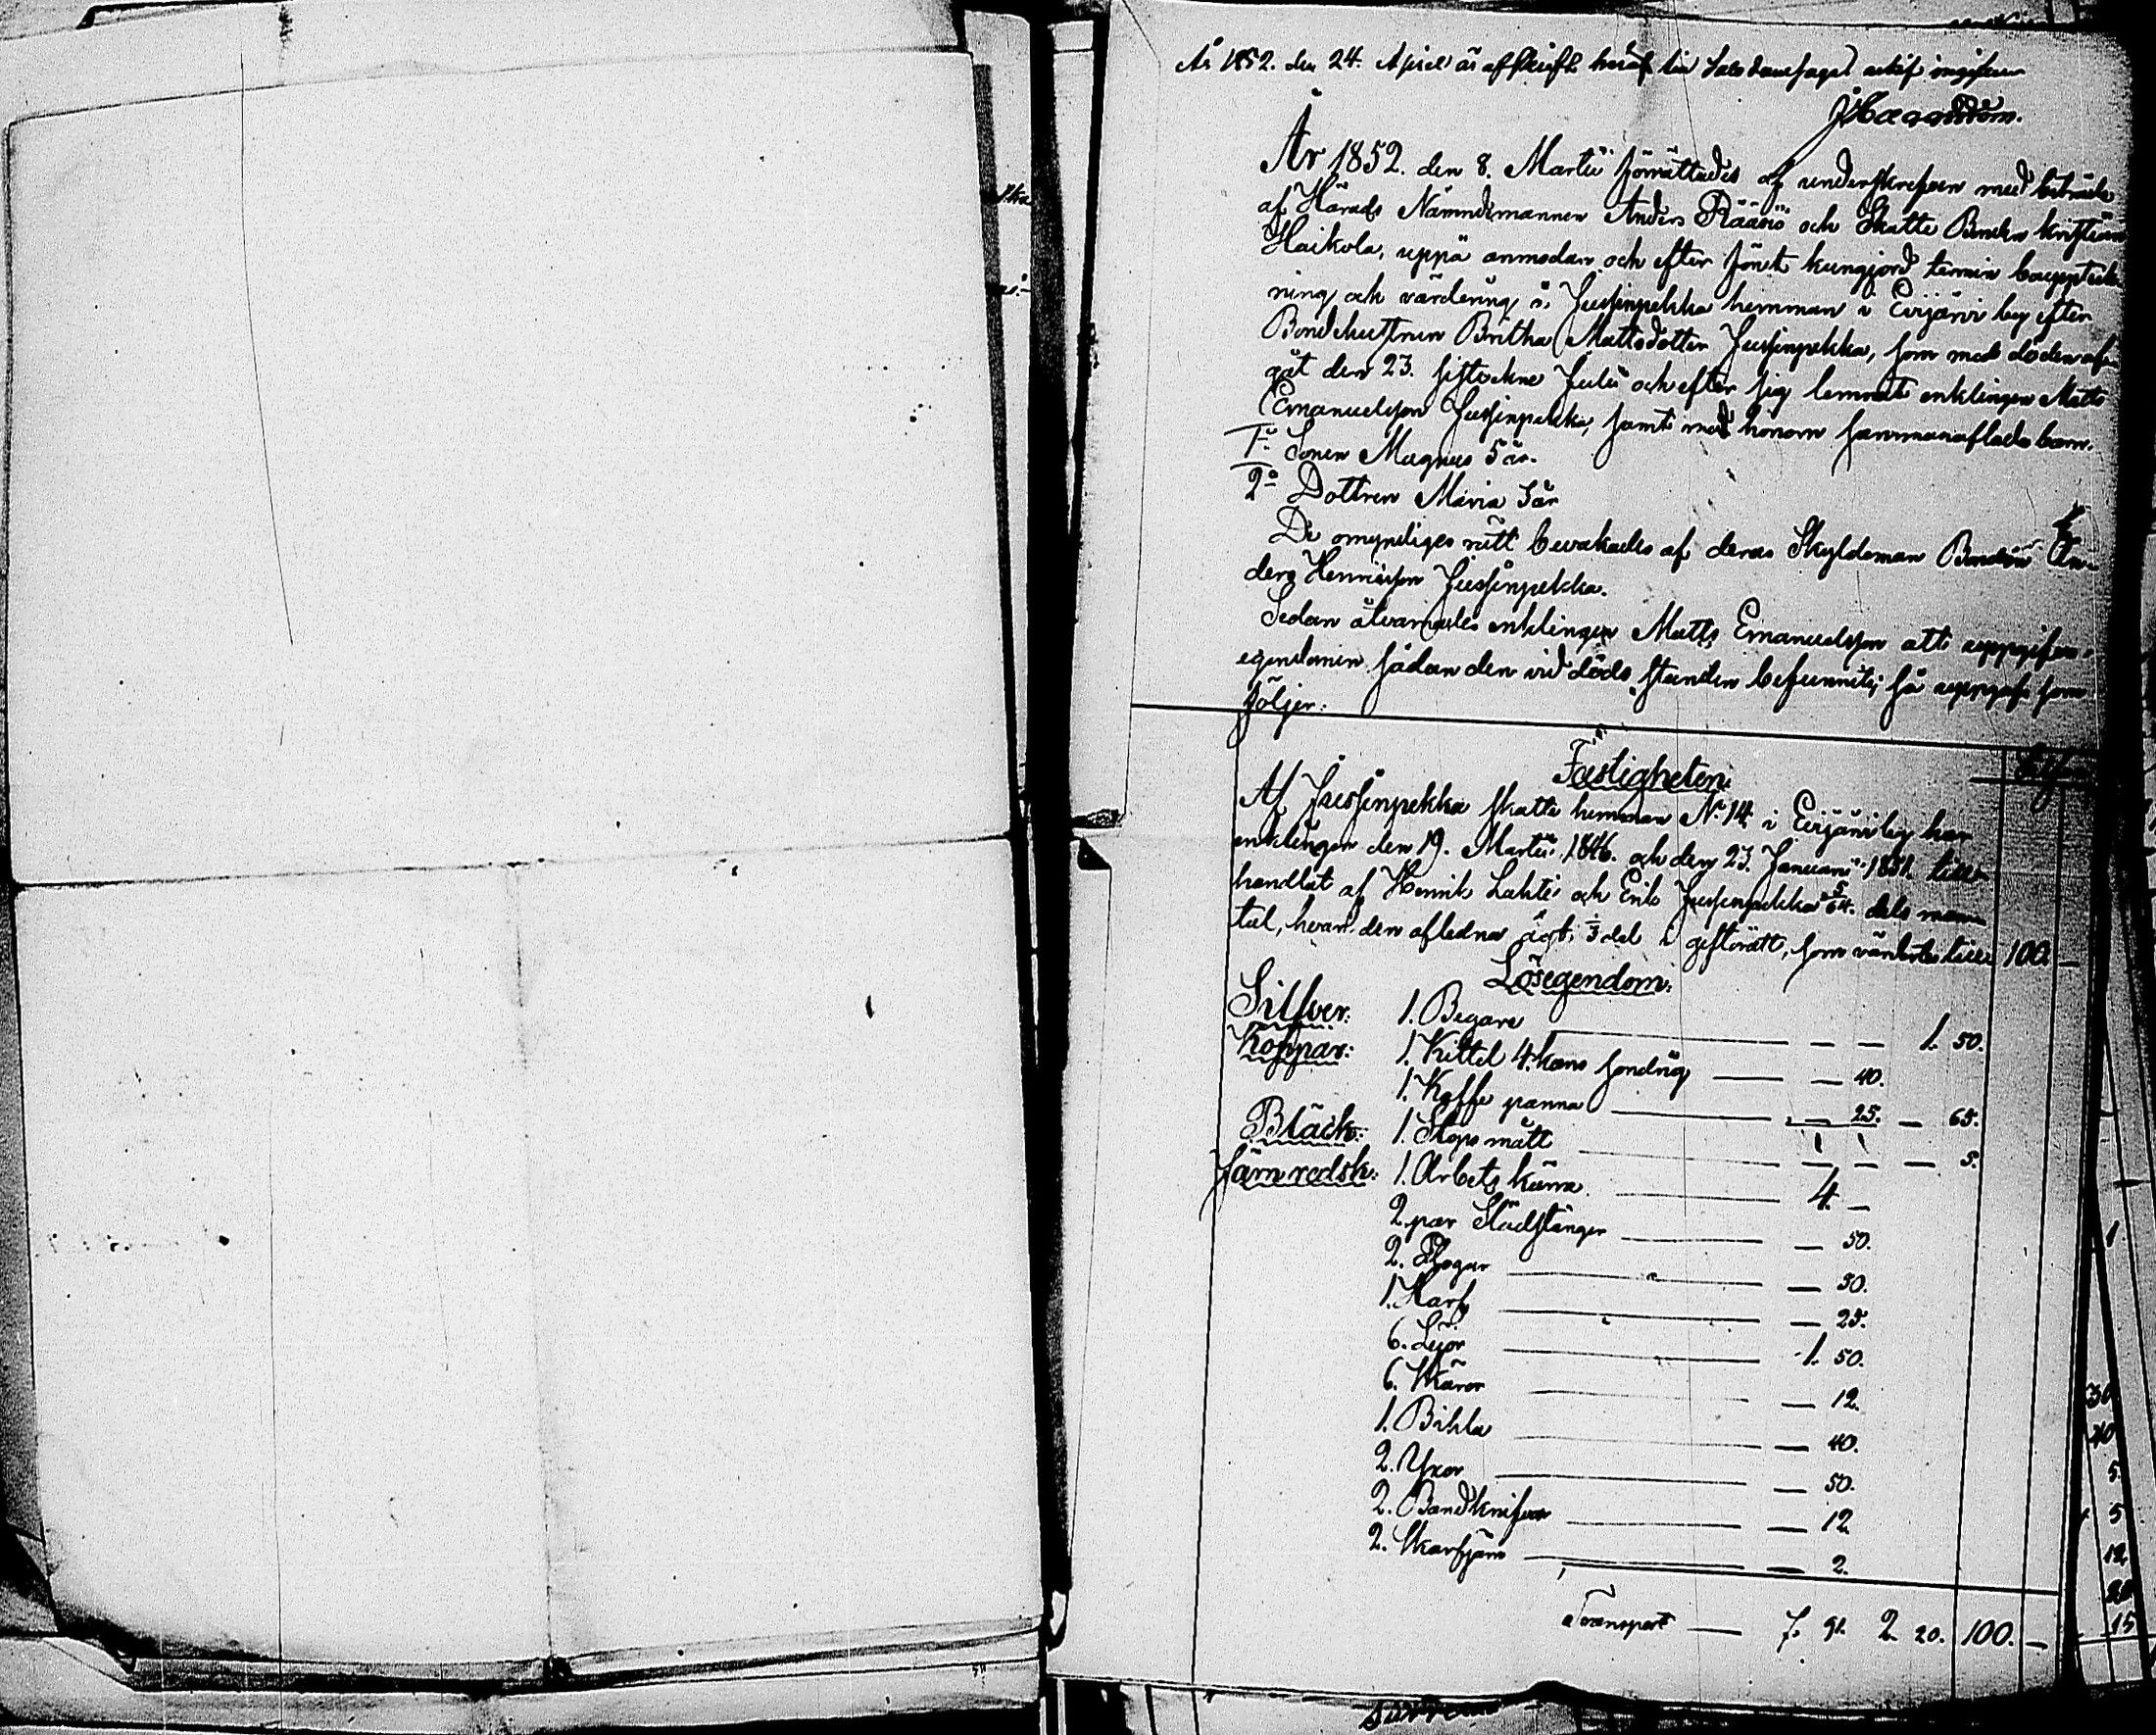 År 1852. den 24. April är afskrift häraf till Domsagas arkif ingifven
År 1852. den 8. Martii förrättades af underskrefven med biträde
af Härads Nämndemannen Anders Rääsiö och Skatte Bonden Kristian
Haikola, uppå anmodan och efter förut kungjord termin bouppteck-
ning och värdering å Jussinpekka hemman i Evijärvi by efter
Bondehustrun Britha Mattsdotter Jussinpekka, som med döden af-
gåt den 23. sistledne Julii och efter sig lemnat enklingen Matts
Emanuelsson Jussinpekka, samt med honom sammanaflade barn.
1o Sonen Magnus 5 år.
2o Dottren Maria 3 år
De omyndiges rätt bevakades af deras Skyldeman Bonden An-
ders Henriksson Jussinpekka.
Sedan åtvarnades enklingen Matts Emanuelsson att uppgifva
egendomen sådan den vid döds stunden befunnits; så uppgafs som
följer:
Fastigheten
Af Jussinpekka skatte hemman No 14 i Evijärvi by har
enklingen den 19. Martii 1846. och den 23. Januarii 1851. till-
handlat af Henrik Lahti och Erik Jussinpekka 5/64. dels man-
tal, hvaraf den afledna ägt 1/3 del i giftorätt, som värderades till 100. —
Lösegendom:
Silfver: 1. Begare — — 1. 50.
Koppar: 1. Kittel 4. kans sondrig — — 40.
1. Kaffe panna — — 25. — 65.
Bläck: 1. Stops mått — — — 5.
Järn redsk: 1. Arbets kärra — 4. —
2. par Slädstänger — — 50.
2. Plogar — — 30.
1. Harf — — 25.
6. Lijor — 1. 50.
6. Skäror — — 12.
1. Bihla — — 40.
2. Yxor — — 50.
2. Bandknifvar — — 12.
2. Skarfjärn — — 2.
Transport — 7. 91. 2. 20. 100. —